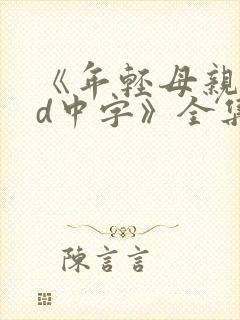 《年轻母親
d中字》全集
陳言言